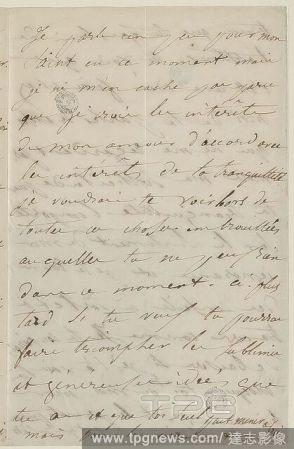 Je parle un peu pour mon
saint en ce moment mais
je ne m'en cache pas parce
que je crois les intérêts
de mon amour d'accord avec
les intérêts de ta tranquillité
je voudrais te voir hors de
toutes ces choses embrouillées
auxquelles tu ne peux rien
dans ce moment. a plus
tard si tu veux tu pourras
faire triompher les sublimes
et généreuses idées que
tu a et que toi seul
mais
TPG
www.tpgnews.com/達志影像